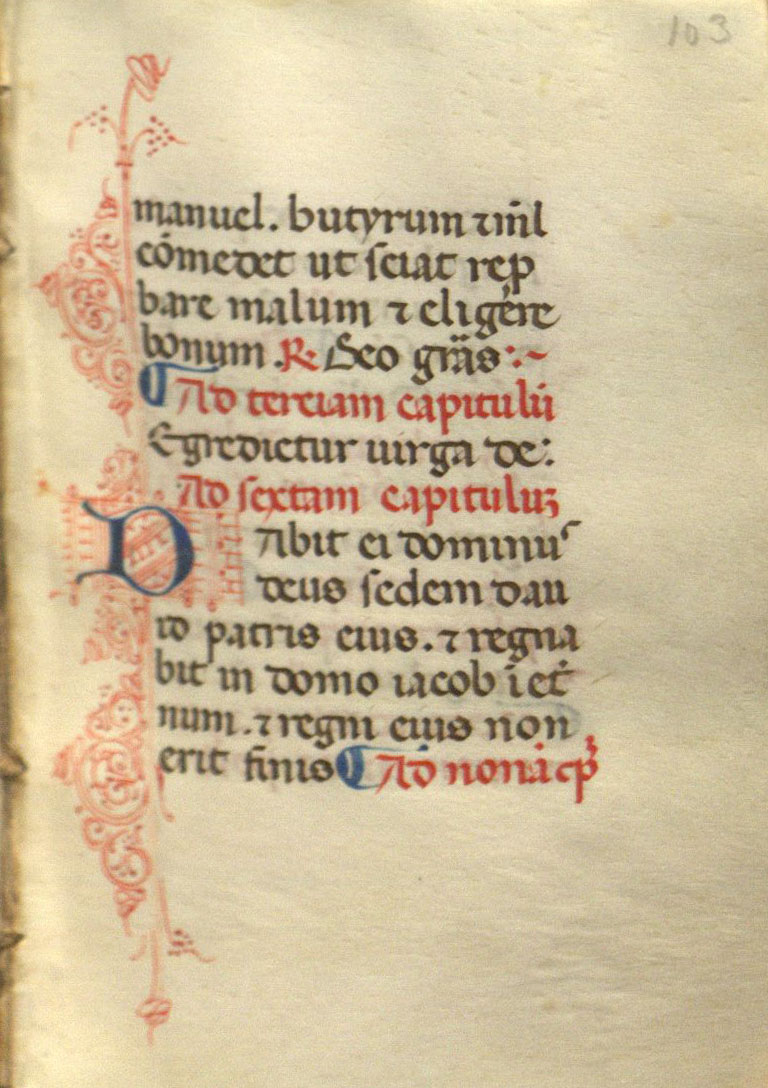 103
manuel. butyrum ⁊ ml̃
cōmedet ut sciat rep̱
bare malum ⁊ eligere
bonum. R̃ Deo grãs:~
Ad terciam capitulũ
Egredietur uirga de:
Ad sextam capituluʒ
Dabit ei dominus
deus sedem dau
id patris eius. ⁊ regna
bit in domo iacob ī et̉
num. ⁊ regni eius non
erit finis Ad nonā cp̃